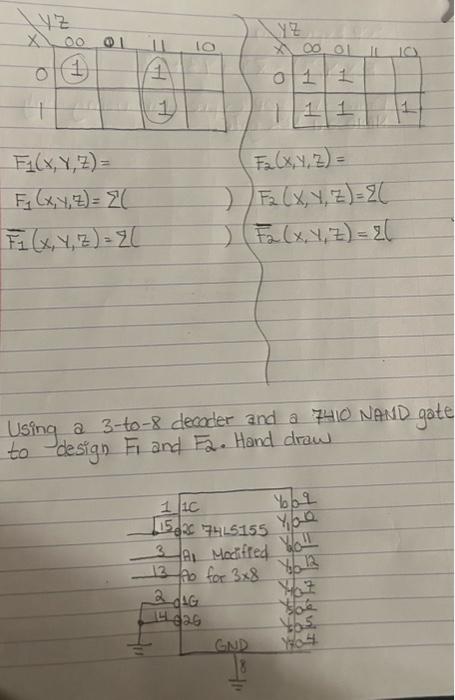 YZ
X 00 01 11 10
0 1 1
1 1
F1(X,Y,Z) =
F1(X,Y,Z) = Σ( )
F̅1(X,Y,Z) = Σ( )
YZ
X 00 01 11 10
0 1 1
1 1 1 1
F2(X,Y,Z) =
F2(X,Y,Z) = Σ(
F̅2(X,Y,Z) = Σ(
Using a 3-to-8 decoder and a 7410 NAND gate
to design F1 and F2. Hand draw
1 1C Y0 9
15 2C 74LS155 Y1 10
3 A1 Modified Y2 11
13 A0 for 3x8 Y3 12
2 1G Y4 7
14 2G Y5 6
Y6 5
GND Y7 4
8